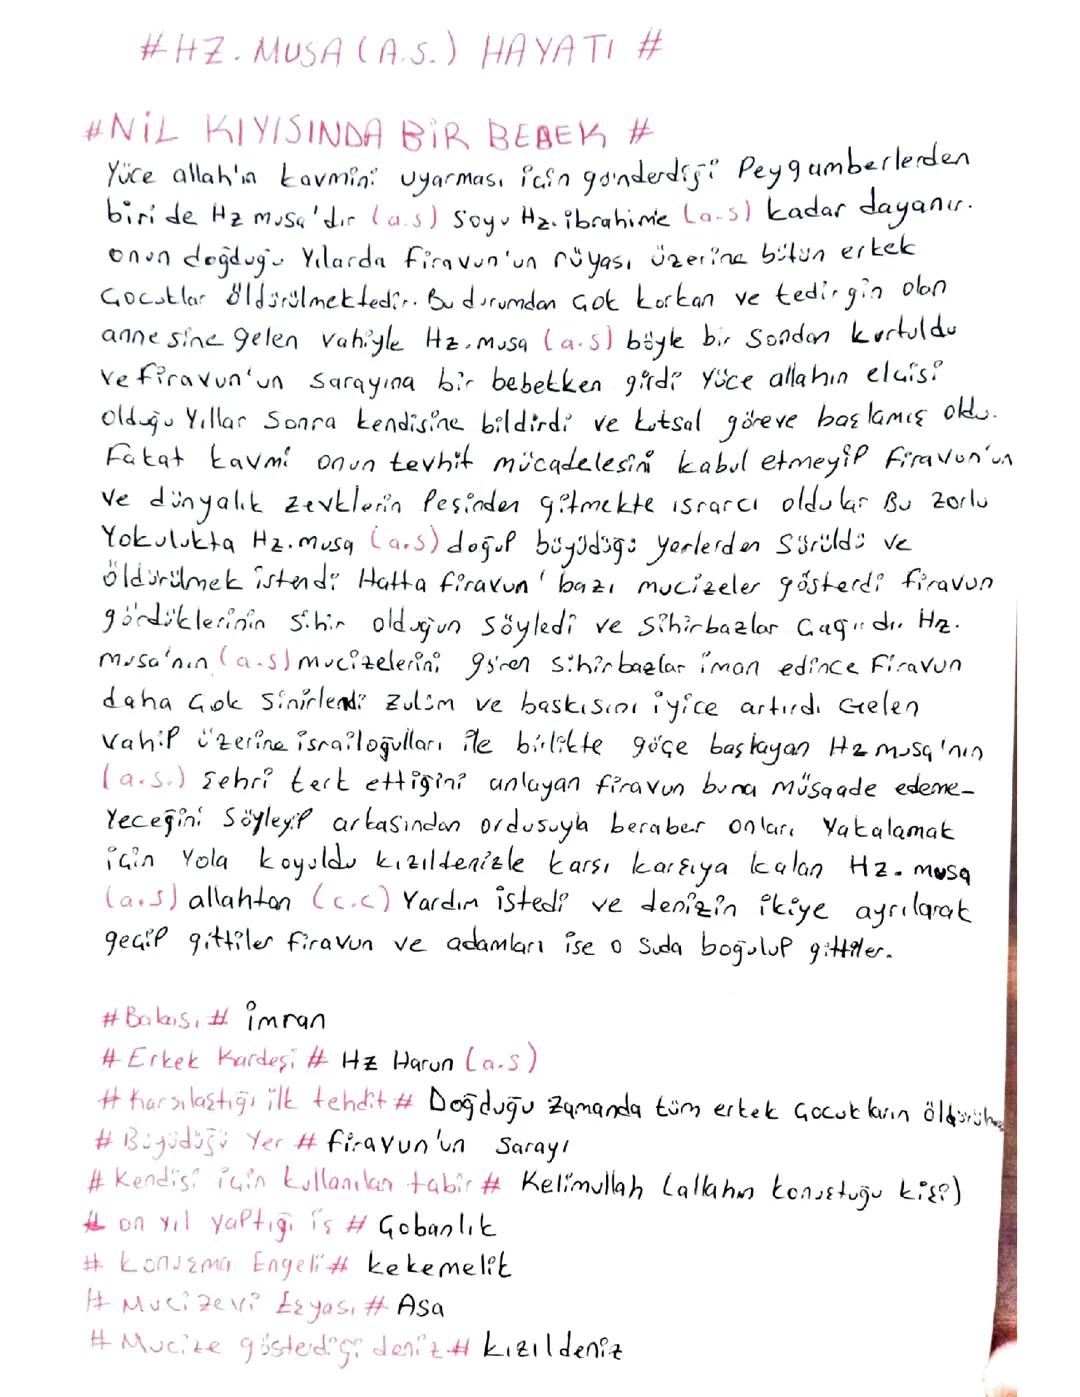 #HZ. MUSA (A.S.) HAYATI #
#NİL KIYISINDA BİR BEBEK #
Yüce allah'ın kavmini uyarması için gönderdiği Peygamberlerden
biri de Hz musa'dır (a.s) Soyu Hz. ibrahim'e (a.s) kadar dayanır.
onun doğduğu Yılarda firavun'un rüyası üzerine bütün erkek
Çocuklar öldürülmektedir. Bu durumdan çok korkan ve tedirgin olan
annesine gelen vahiyle Hz. musa (a.s) böyle bir Sondan kurtuldu
ve firavun'un Sarayına bir bebekken girdi Yüce allahın elçisi
olduğu Yıllar Sonra kendisine bildirdi ve kutsal göreve başlamış oldu.
Fakat kavmi onun tevhit mücadelesini kabul etmeyip firavun'un
ve dünyalık zevklerin Peşinden gitmekte ısrarcı oldular Bu zorlu
Yokulukta Hz. musa (a.s) doğup büyüdüğü yerlerden Sürüldü ve
öldürülmek istendi Hatta firavun' bazı mucizeler gösterdi firavun
gördüklerinin sihir olduğun Söyledi ve Sihirbazlar Çağırdı. Hz.
musa'nın (a.s) mucizelerini gören sihirbazlar iman edince Firavun
daha çok Sinirlendi Zulüm ve baskısını iyice artırdı Gelen
vahip üzerine israiloğulları ile birlikte göçe başlayan Hz musa'nın
(a.s.) şehri terk ettiğini anlayan firavun buna müsaade edeme-
Yeceğini Söyleyip arkasından ordusuyla beraber onları Yakalamak
için Yola koyuldu kızıldenizle karsı karşıya kalan Hz. musa
(a.s) allahtan (c.c) Yardım istedi ve denizin ikiye ayrılarak
geçip gittiler firavun ve adamları ise o Suda boğulup gittiler.
#Babası # imran
# Erkek Kardeşi # Hz Harun (a.s)
# karsılaştığı ilk tehdit # Doğduğu Zamanda tüm erkek Çocukların
# Büyüdüğü Yer # firavun'un Sarayı
# Kendisi için kullanılan tabir # Kelimullah (allahın konuştuğu kişi)
# on yıl yaptığı iş # Çobanlık
# konuşma Engeli # kekemelik
# Mucizevi Eşyası # Asa
# Mucize gösterdiği deniz # kızıldeniz